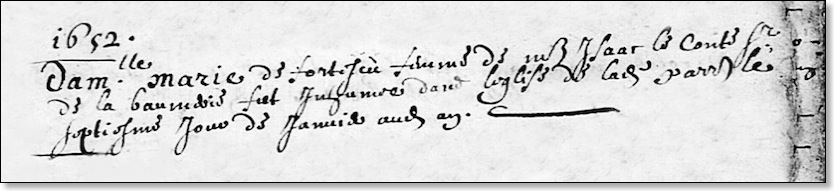 1652.
Dam.lle marie de fortescu femme de mr Isaac le Conte sr
de la baumerie fut Inhumee dans leglise de lad parr le
septiesme Jour de Janvier aud an.